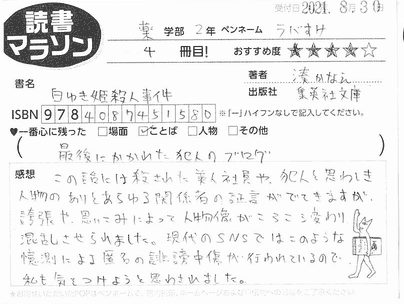 受付日 2021. 8月30日
読書マラソン
薬 学部 2年 ペンネーム うべすけ
4 冊目! おすすめ度 ★★★★☆
書名 白ゆき姫殺人事件
著者 湊かなえ
出版社 集英社文庫
ISBN 9784087451580 ※「-」ハイフンなしで記入してください。
♥一番心に残った □場面 ☑ことば □人物 □その他
(最後にかかれた犯人のブログ)
感想 この話には殺された美人社員や、犯人と思わしき
人物のありとあらゆる関係者の証言がでてきますが、
誇張や思いこみによって人物像がころころ変わり
混乱しさせられました。現代のSNSではこのような
憶測による度々の誹謗中傷が行われているので、
私も気をつけようと思わされました。